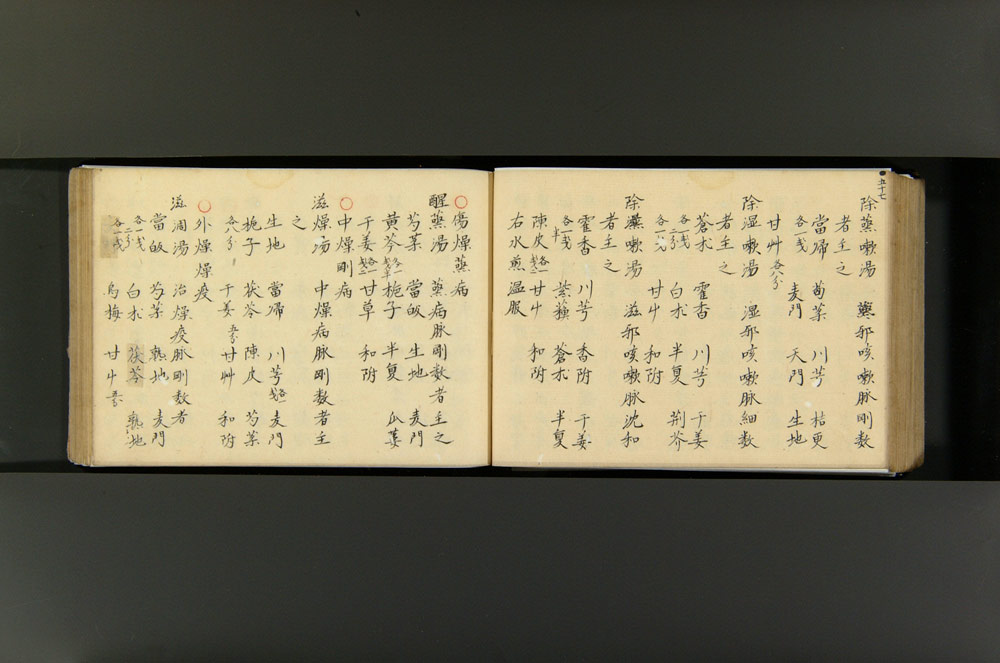 五十七
除蒸嗽湯 蒸邪咳嗽脉剛数
者主之
當帰 芍薬 川芎 桔更
各一戔 麦門 天門 生地
甘艸 各八分
除湿嗽湯 湿邪咳嗽脉細数
者主之
蒼朮 霍香 川芎 干姜
各一戔二分 白朮 半夏 荊芥
各八分 甘艸 和附
除嗽湯 滋邪咳嗽脉沈和
者主之
霍香 川芎 香附 干姜
各一戔半 紫蘓 蒼朮 半夏
陳皮 甘艸 和附
右水煎温服
○傷燥蒸病
醒蒸湯 蒸病脉剛数者主之
芍薬 當皈 生地 麦門
黄芩 梔子 半夏 瓜蔞
干姜 甘草 和附
○中燥剛病
滋燥湯 中燥病脉剛数者主
之
生地 當帰 川芎 麦門
梔子 茯苓 陳皮 芍薬
各八分 干姜 五分 甘艸 和附
○外燥燥疫
滋潤湯 治燥疫脉剛数者
當皈 芍薬 熟地 麦門
各一戔二分 白朮 茯苓 熟地
各一戔 烏梅 甘艸 五分